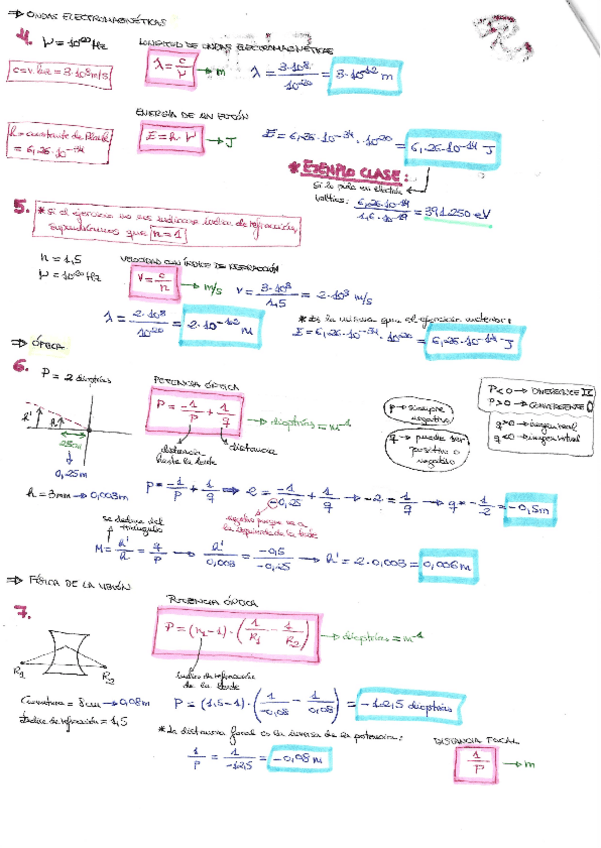 ⇒ ONDAS ELECTROMAGNÉTICAS
4. ν = 10²⁰ Hz
LONGITUD DE ONDAS ELECTROMAGNÉTICAS
c = v. luz = 3·10⁸ m/s
λ = c/ν → m
λ = 3·10⁸/10²⁰ = 3·10⁻¹² m
ENERGÍA DE UN FOTÓN
h = constante de Plank = 6,26·10⁻³⁴
E = h·ν → J
E = 6,26·10⁻³⁴ · 10²⁰ = 6,26·10⁻¹⁴ J
* EJEMPLO CLASE:
Si lo pide en electrón
voltios: 6,26·10⁻¹⁴/1,6·10⁻¹⁹ = 391.250 eV
5. * si el ejercicio no nos indica índice de refracción,
supondremos que n = 1
n = 1,5
ν = 10²⁰ Hz
VELOCIDAD CON ÍNDICE DE REFRACCIÓN
v = c/n → m/s
v = 3·10⁸/1,5 = 2·10⁸ m/s
λ = 2·10⁸/10²⁰ = 2·10⁻¹² m
* Es la misma que el ejercicio anterior:
E = 6,26·10⁻³⁴ · 10²⁰ = 6,26·10⁻¹⁴ J
⇒ ÓPTICA
6. P = 2 dioptrías
POTENCIA ÓPTICA
P = -1/p + 1/q → dioptrías = m⁻¹
distancia
hasta la lente
distancia
p → siempre
negativo
q → puede ser
positivo o
negativo
P < 0 → DIVERGENTE
P > 0 → CONVERGENTE
q > 0 → imagen real
q < 0 → imagen virtual
h'
h
25cm
0,25m
h = 3mm → 0,003m
P = -1/p + 1/q ⇒ 2 = -1/-0,25 + 1/q → -2 = 1/q → q = -1/2 = -0,5m
negativo porque va a
la izquierda de la lente
se deduce del
triángulo
M = h'/h = q/p → h'/0,003 = -0,5/-0,25 → h' = 2·0,003 = 0,006m
⇒ FÍSICA DE LA VISIÓN
7.
POTENCIA ÓPTICA
P = (n-1)·(1/R₁ - 1/R₂) → dioptrías = m⁻¹
índice de refracción
de la lente
R₁
R₂
Curvatura = 8cm → 0,08m
Índice de refracción = 1,5
P = (1,5-1)·(1/-0,08 - 1/0,08) = -12,5 dioptrías
* La distancia focal es la inversa de la potencia:
1/P = 1/-12,5 = -0,08 m
DISTANCIA FOCAL
1/P → m